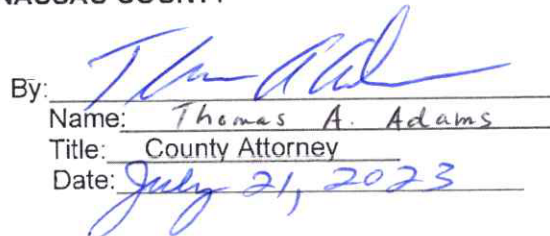 NASSAU COUNTY
By:
Name: Thomas A. Adams
Title: County Attorney
Date: July 21, 2023